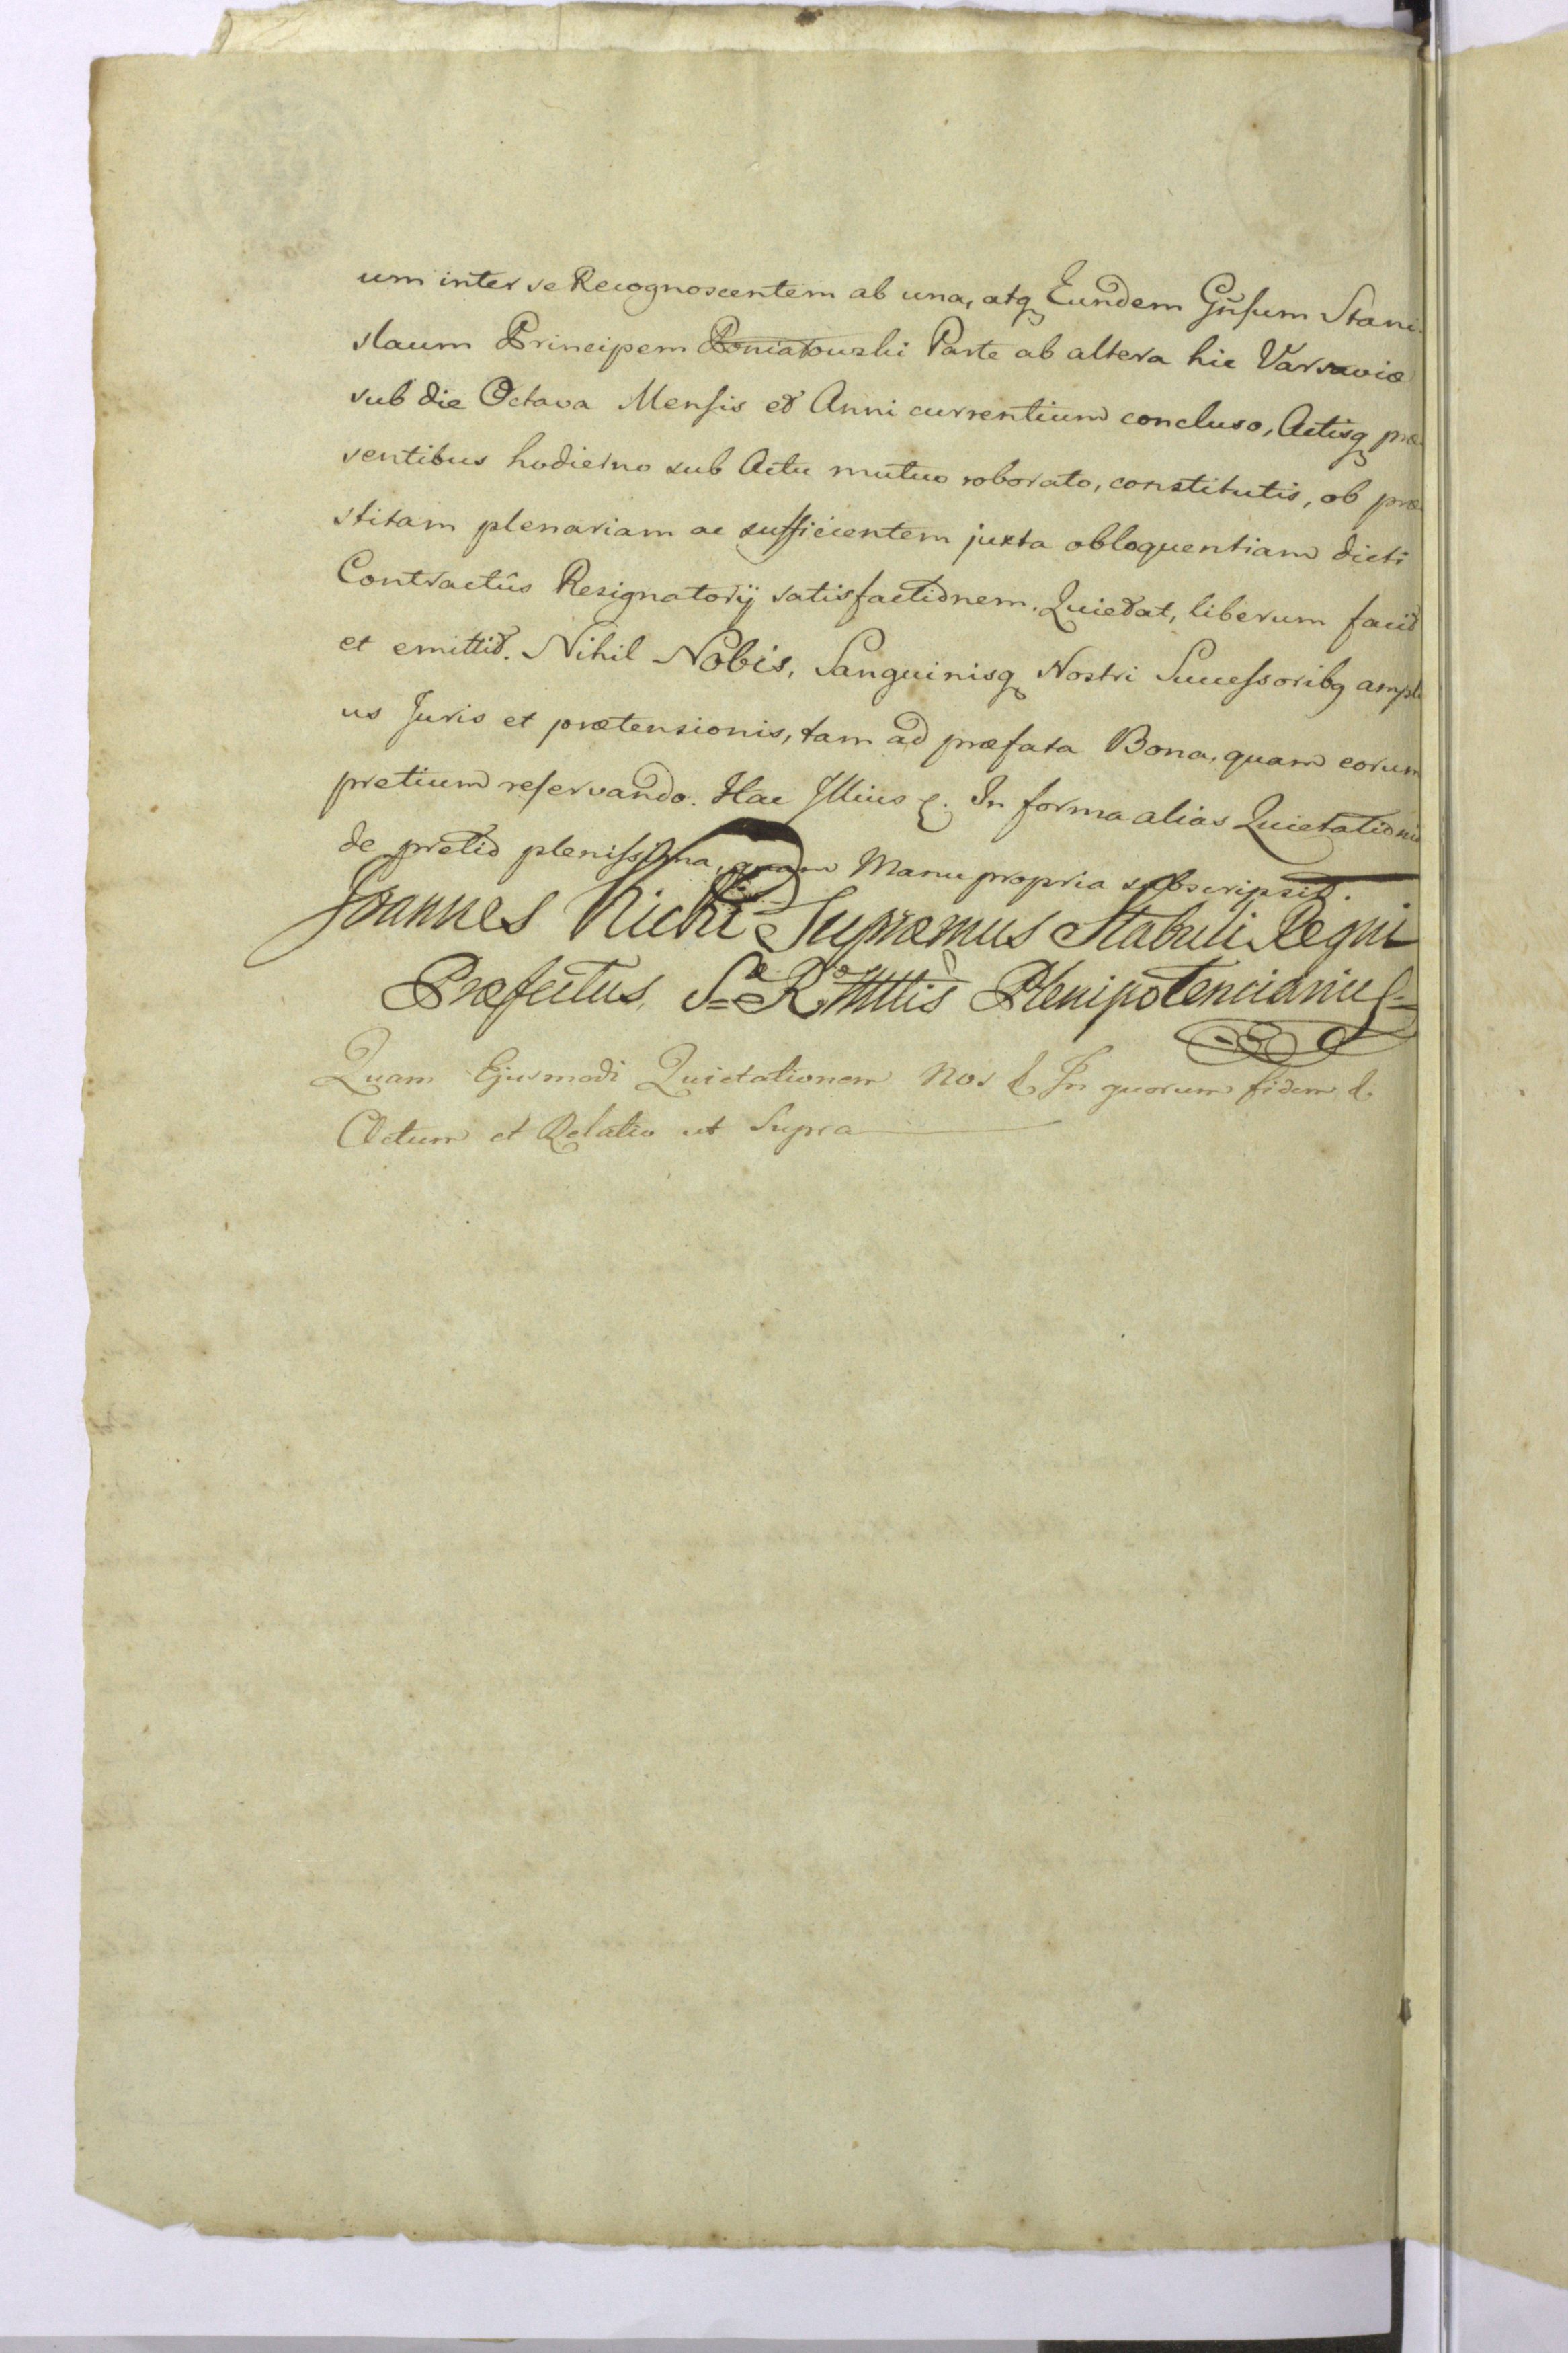 um inter se Recognoscentem ab una, atq Eundem Gnsum Stani
slaum Principem Poniatowski Parte ab altera hic Varsaviæ
sub die Octava Mensis et Anni currentium concluso, Actisq præ
sentibus hodierno sub Actu mutuo roborato, constitutis, ob præ
stitam plenariam ac sufficientem juxta obloquentiam dicti
Contractûs Resignatorij satisfactionem. Quietat, liberum facit
et emittit. Nihil Nobis, Sanguinisq Nostri Successoribq ampli
us Juris et prætensionis, tam ad præfata Bona, quam eorum
pretium reservando. Hac Illius &. In forma alias Quietationis
de pretio plenissima, quam Manu propria subscripsit.
Joannes Kicki Supræmus Stabuli Regni
Præfectus, S R Mttis Plenipotenciarius
Quam Ejusmodi Quietationem Nos & In quorum fidem &
Actum et Relatio ut Supra